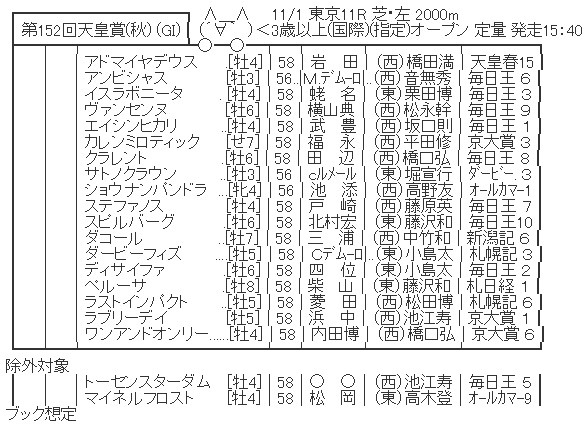 第152回天皇賞(秋) (GI) ∧＿∧ (´∀｀) 11/1 東京11R 芝・左 2000m
＜3歳以上(国際)(指定)オープン 定量 発走15:40
アドマイヤデウス [牡4] 58 岩 田 (西)橋田満 天皇春15
アンビシャス [牡3] 56 M.デムーロ (西)音無秀 毎日王 6
イスラボニータ [牡4] 58 蛯 名 (東)栗田博 毎日王 3
ヴァンセンヌ [牡6] 58 横山典 (西)松永幹 毎日王 9
エイシンヒカリ [牡4] 58 武 豊 (西)坂口則 毎日王 1
カレンミロティック [せ7] 58 福 永 (西)平田修 京大賞 3
クラレント [牡6] 58 田 辺 (西)橋口弘 毎日王 8
サトノクラウン [牡3] 56 cルメール (東)堀宣行 ダービー 3
ショウナンパンドラ [牝4] 56 池 添 (西)高野友 オールカマー1
ステファノス [牡4] 58 戸 崎 (西)藤原英 毎日王 7
スピルバーグ [牡6] 58 北村宏 (東)藤沢和 毎日王10
ダコール [牡7] 58 三 浦 (西)中竹和 新潟記 6
ダービーフィズ [牡5] 58 Cデムーロ (東)小島太 札幌記 3
ディサイファ [牡6] 58 四 位 (東)小島太 毎日王 2
ペルーサ [牡8] 58 柴 山 (東)藤沢和 札日経 1
ラストインパクト [牡5] 58 菱 田 (西)松田博 札幌記 6
ラブリーデイ [牡5] 58 浜 中 (西)池江寿 京大賞 1
ワンアンドオンリー [牡4] 58 内田博 (西)橋口弘 京大賞 6
除外対象
トーセンスターダム [牡4] 58 ○ ○ (西)池江寿 毎日王 5
マイネルフロスト [牡4] 58 松 岡 (東)高木登 オールカマー9
ブック想定